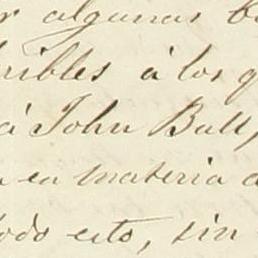 r algunas
ribles á los
á John Bull,
en materia
todo esto, sin